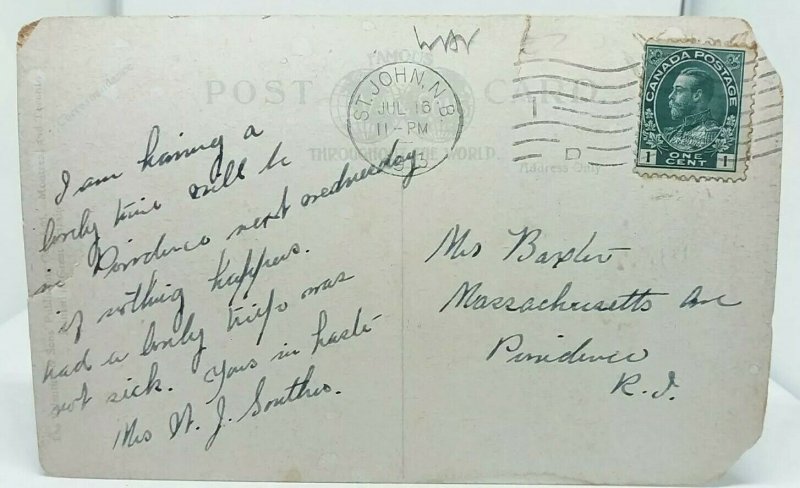 WAV
FAMOUS
POST CARD.
THROUGHOUT THE WORLD.
ST. JOHN, N.B.
JUL 16
11-PM
D
Address Only
CANADA POSTAGE
1 ONE CENT 1
Correspondence
I am having a
lovely time will be
in Providence next wednesday
if nothing happens.
had a lovely trip was
not sick. Yours in haste
Mrs W. J.
Mrs Baxter
Massachusetts Ave
Providence
R.I.